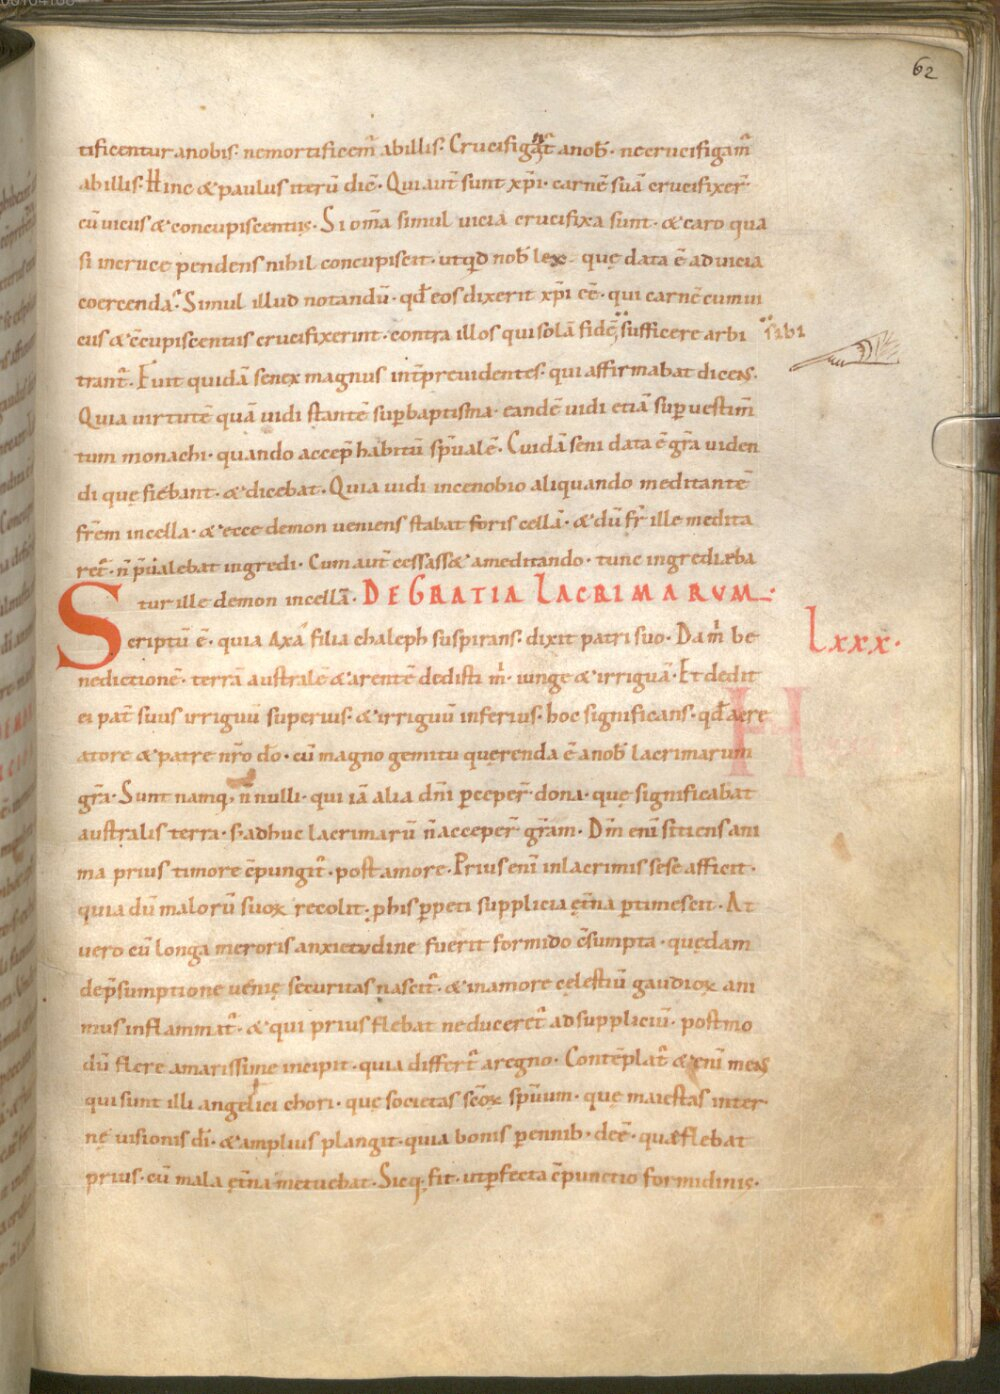 62
tificentur anobis· nemortificem̄ abillis· Crucifigant̄ anob̄· necrucifigam̄
abillis· Hinc & paulus iterū dic̄· Qui aut̄ sunt xp̄i· carnē suā crucifixer̄
cū viciis & concupiscentiis· Si om̄a simul vicia crucifixa sunt· & caro qua
si incruce pendens nihil concupiscit· utqd nob̄ lex quę data ē ad vicia
coercenda· Simul illud notandū· qđ eos dixerit xp̄i ēē· qui carnē cum ui
ciis & c̄cupiscentiis crucifixerint· contra illos qui solā fidē sufficere arbi sibi
trant̄· Fuit quidā senex magnus int̄ previdentes· qui affirmabat dicens·
Quia virtutē quā vidi stantē sup baptisma· eandē vidi etiā sup vestim̄
tum monachi· quando accep̄ habitū sp̄ualē· Cuidā seni data ē gr̄a uiden
di quę fiebant· & dicebat· Quia vidi incenobio aliquando meditantē
fr̄em incella· & ecce demon veniens stabat foris cellā· & dū fr̄ ille medita
ret̄· n̄ p̄ualebat ingredi· Cum aut̄ cessass& ameditando· tunc ingredieba
tur ille demon incellā· DE GRATIA LACRIMARVM·
Scriptū ē· quia Axa filia chaleph suspirans· dixit patri suo· Da m̄ be Lxxx·
nedictionē· terrā australē & arentē dedisti m̄· iunge & irriguā· Et dedit
ei pat̄ suus irriguū superius· & irriguū inferius· hoc significans· qđ acre
atore & patre nr̄o do· cū magno gemitu querenda ē anob̄ lacrimarum
gr̄a· Sunt namq; n̄nulli· qui iā alia dn̄i peceper̄ dona· quę significabat
australis terra· s; adhuc lacrimarū n̄ acceper̄ gr̄am· Dm̄ enī sitiens ani
ma prius timore c̄pungit̄· post amore· Prius enī inlacrimis sese afficit·
quia dū malorū suoꝝ recolit· p his ppeti supplicia ęt̄na ptimescit· At
vero cū longa meroris anxietudine fuerit formido c̄sumpta· quędam
dep̄sumptione venię securitas nascit̄· & inamore cęlestiū gaudioꝝ ani
mus inflammat̄· & qui prius flebat ne duceret̄ ad suppliciū· postmo
dū flere amarissime incipit· quia differt̄ aregno· Contēplat̄ & enī mens
qui sunt illi angelici chori· quę societas sc̄oꝝ sp̄uum· quę maiestas inter
nę visionis dī· & amplius plangit· quia bonis pennib· deē· quā flebat
prius· cū mala ęt̄na metuebat· Sicq; fit· ut pfecta c̄punctio formidinis·